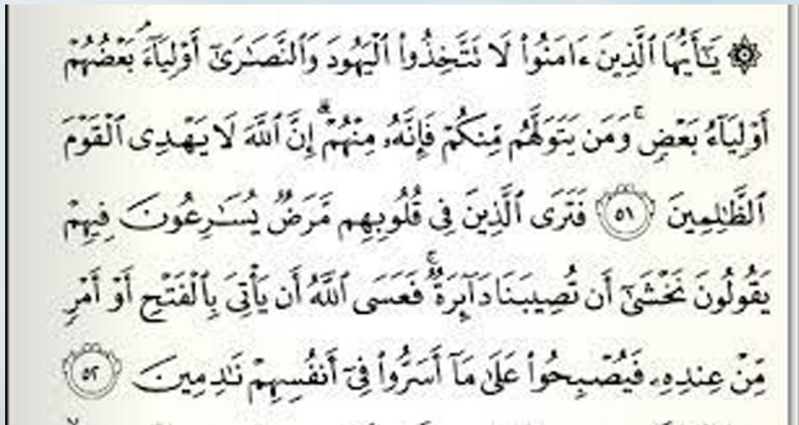 ۞ يَـٰٓأَيُّهَا ٱلَّذِينَ ءَامَنُوا۟ لَا تَتَّخِذُوا۟ ٱلْيَهُودَ وَٱلنَّصَـٰرَىٰٓ أَوْلِيَآءَ ۘ بَعْضُهُمْ
أَوْلِيَآءُ بَعْضٍ ۚ وَمَن يَتَوَلَّهُم مِّنكُمْ فَإِنَّهُۥ مِنْهُمْ ۗ إِنَّ ٱللَّهَ لَا يَهْدِى ٱلْقَوْمَ
ٱلظَّـٰلِمِينَ ٥١ فَتَرَى ٱلَّذِينَ فِى قُلُوبِهِم مَّرَضٌ يُسَـٰرِعُونَ فِيهِمْ
يَقُولُونَ نَخْشَىٰٓ أَن تُصِيبَنَا دَآئِرَةٌ ۚ فَعَسَى ٱللَّهُ أَن يَأْتِىَ بِٱلْفَتْحِ أَوْ أَمْرٍ
مِّنْ عِندِهِۦ فَيُصْبِحُوا۟ عَلَىٰ مَآ أَسَرُّوا۟ فِىٓ أَنفُسِهِمْ نَـٰدِمِينَ ٥٢